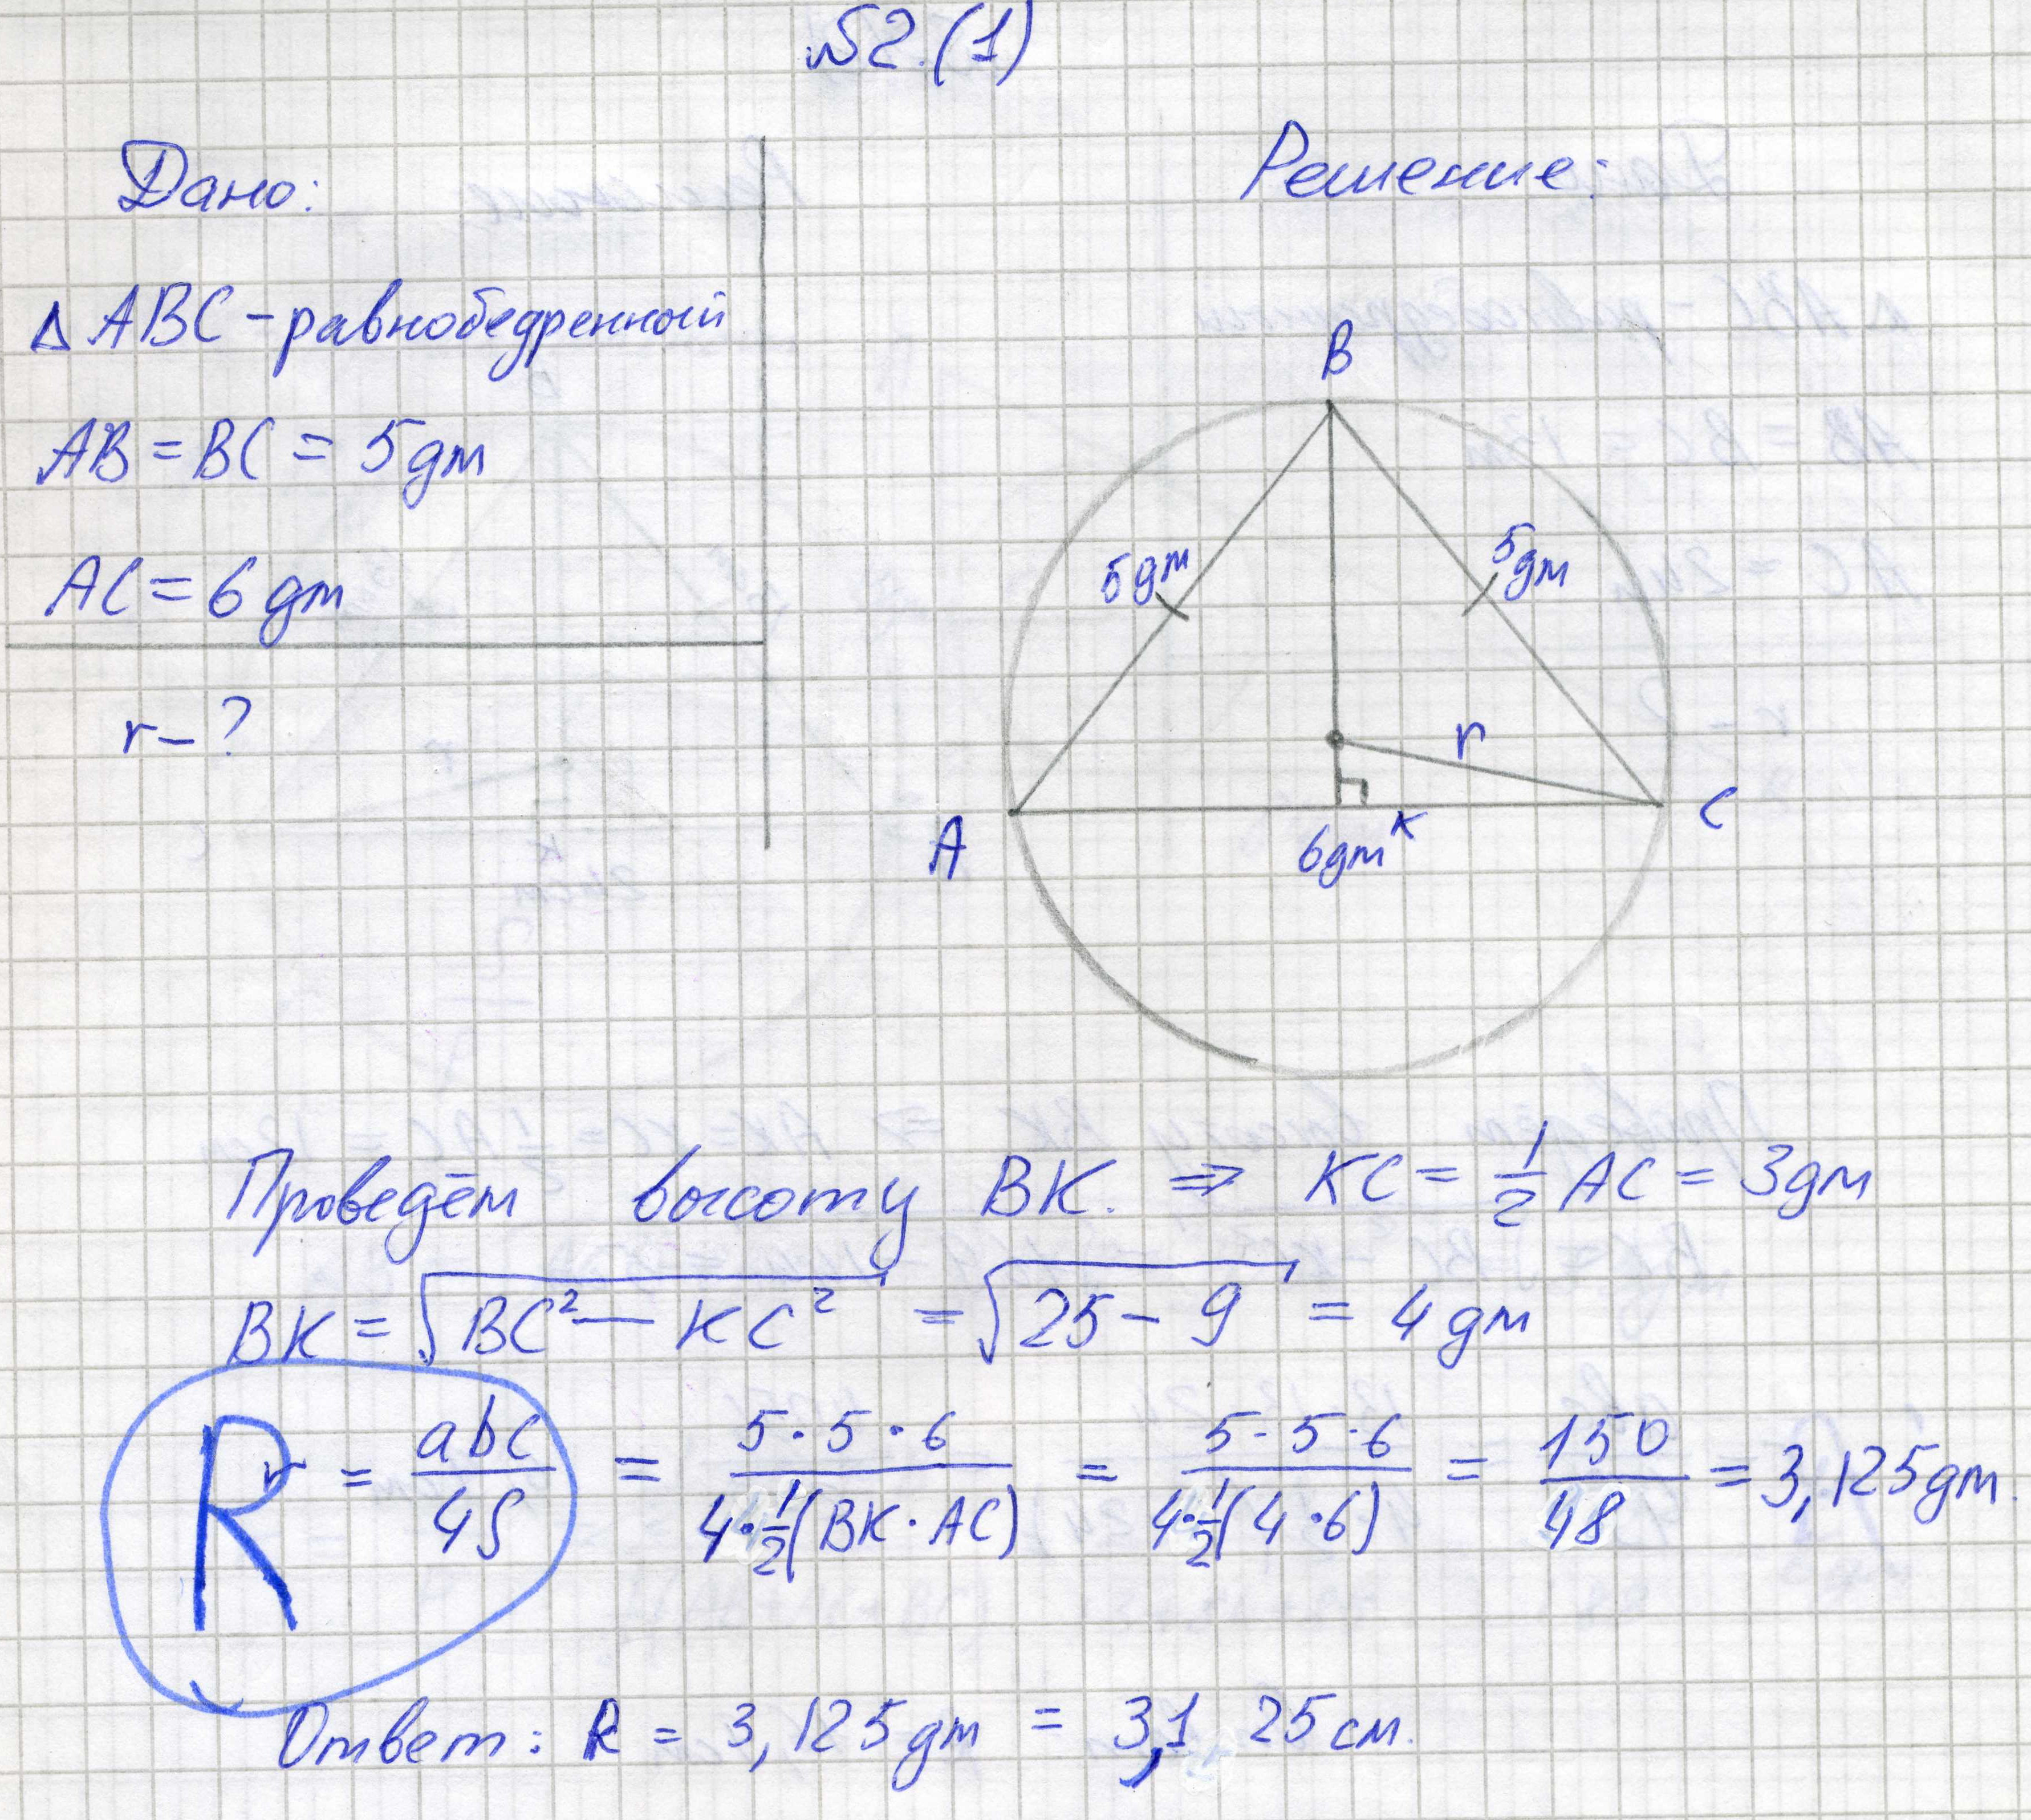 №2.(1)
Дано:
Решение:
Δ ABC - равнобедренный
AB = BC = 5 дм
AC = 6 дм
r - ?
B
5 дм
5 дм
r
A
K
C
6 дм
Проведём высоту BK. ⇒ KC = 1/2 AC = 3 дм
BK = √(BC² - KC²) = √(25 - 9) = 4 дм
R = abc/4S = 5·5·6/4·1/2(BK·AC) = 5·5·6/4·1/2(4·6) = 150/48 = 3,125 дм.
Ответ: R = 3,125 дм = 3,1 25 см.